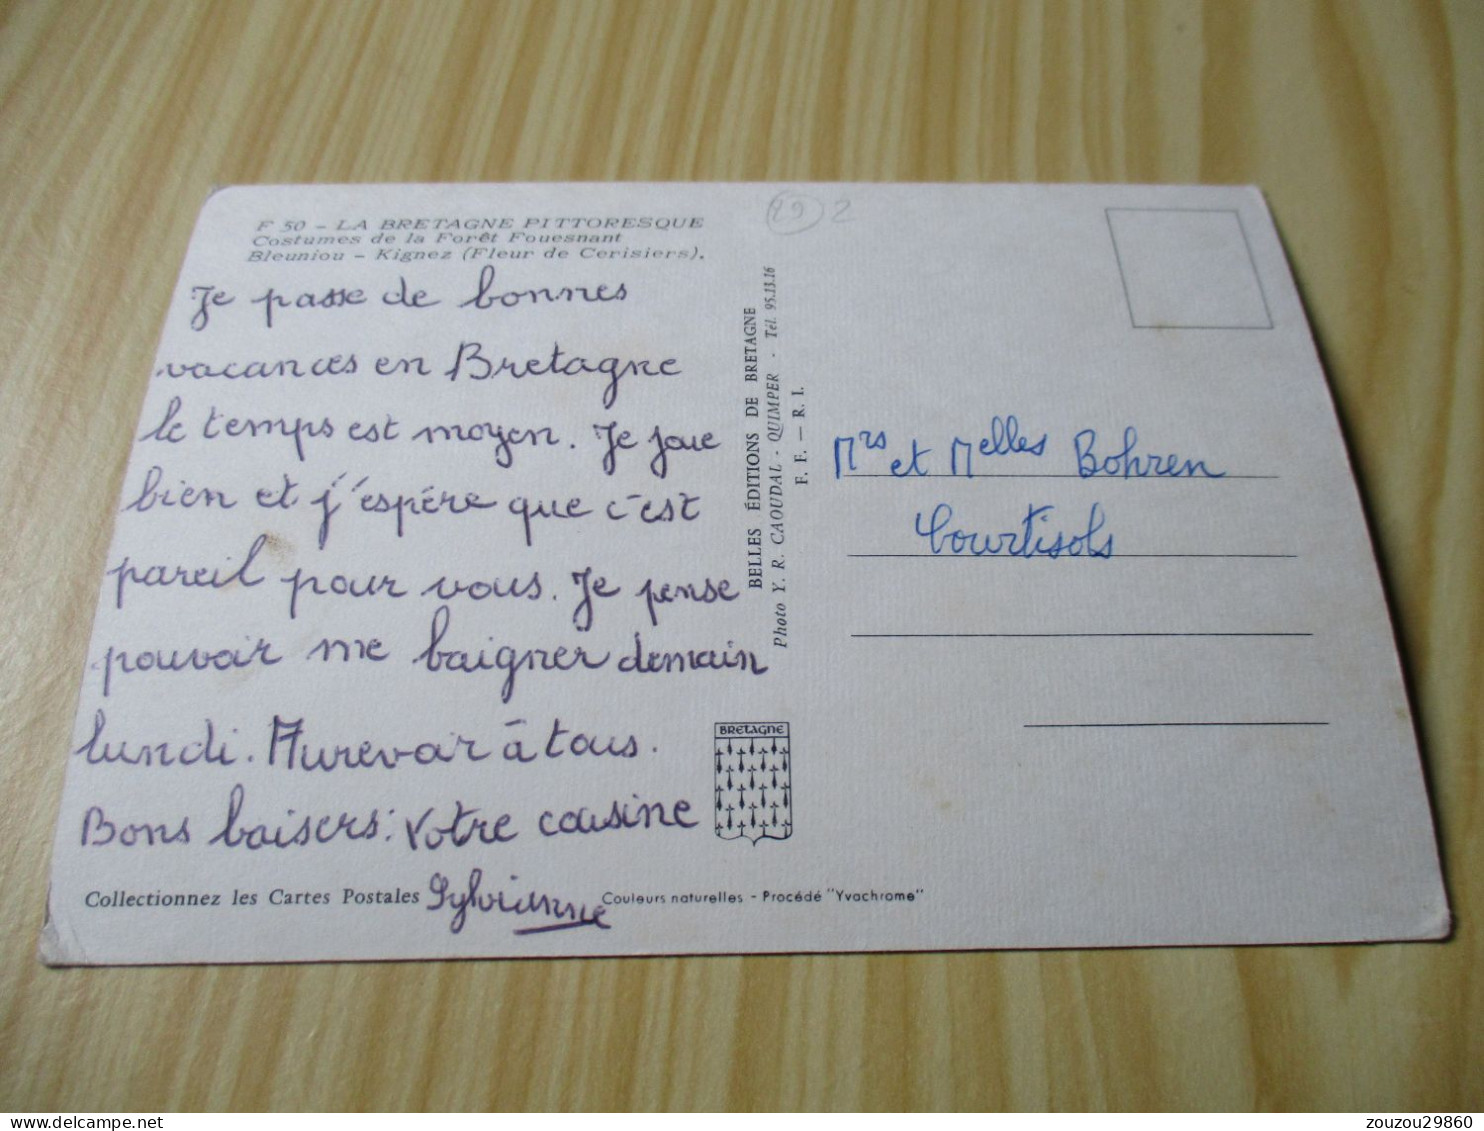 F 50 - LA BRETAGNE PITTORESQUE
Costumes de la Forêt Fouesnant
Bleuniou - Kignez (Fleur de Cerisiers).
Je passe de bonnes
vacances en Bretagne
le temps est moyen. Je joue
bien et j'espère que c'est
pareil pour vous. Je pense
pouvoir me baigner demain
lundi. Aurevoir à tous.
Bons baisers: Votre cousine
Sylvianne
Collectionnez les Cartes Postales
Couleurs naturelles - Procédé "Yvachrome"
BELLES ÉDITIONS DE BRETAGNE
Photo Y. R. CAOUDAL - QUIMPER - Tél. 95.13.16
F. F. — R. I.
BRETAGNE
29 2
Mrs et Melles Bohren
Courtisols
delcampe.net
zouzou29860